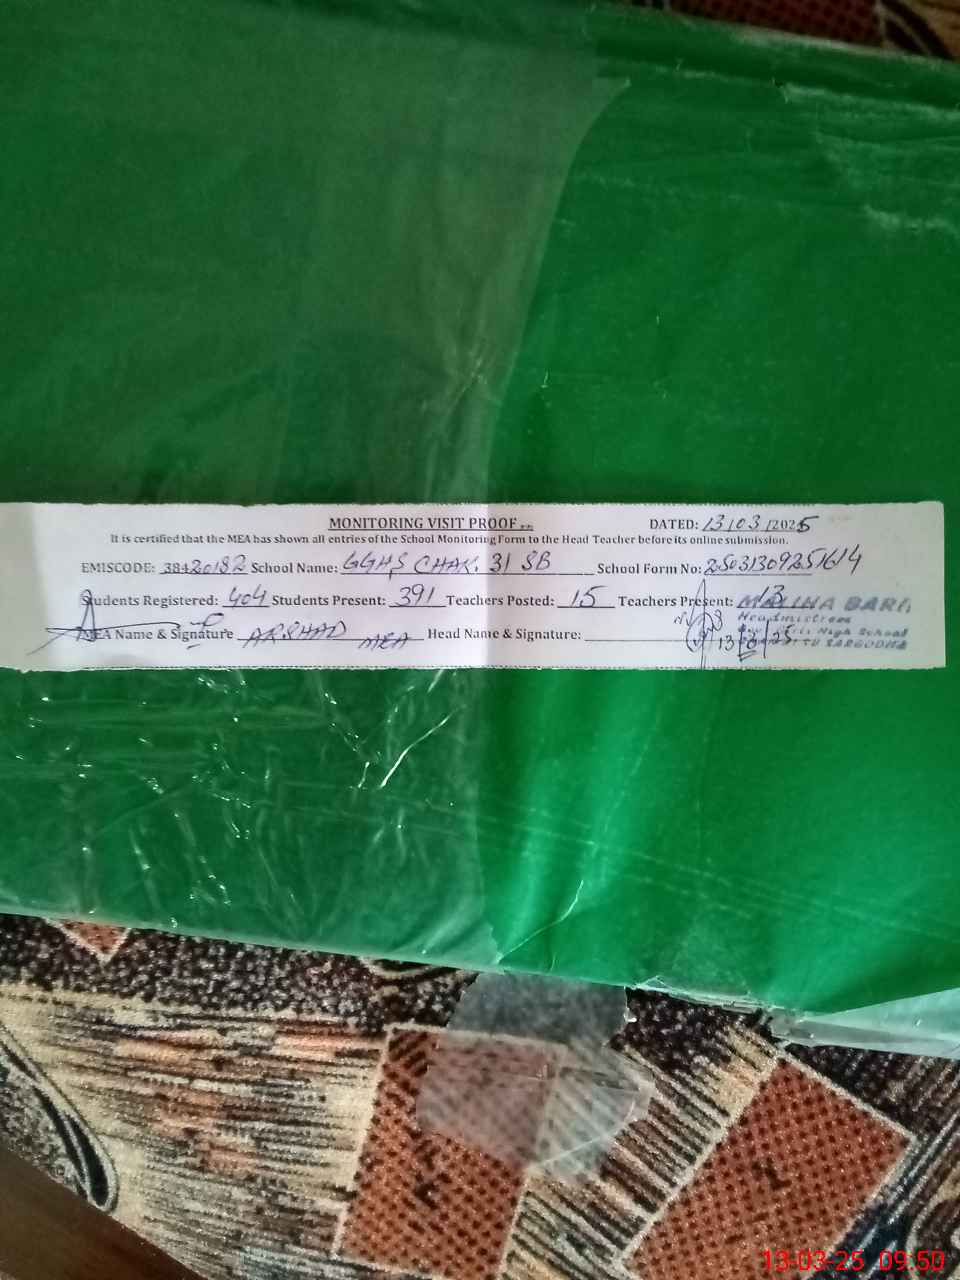 MONITORING VISIT PROOF
DATED: 13/03/2025
It is certified that the MEA has shown all entries of the School Monitoring Form to the Head Teacher before its online submission.
EMISCODE: 38420182 School Name: GGHS CHAK. 31 SB School Form No: 25031309251614
Students Registered: 404 Students Present: 391 Teachers Posted: 15 Teachers Present: 13
MEA Name & Signature ARSHAD MEA Head Name & Signature:
Headmistress
High School
SARGODHA
13-03-25 09:50